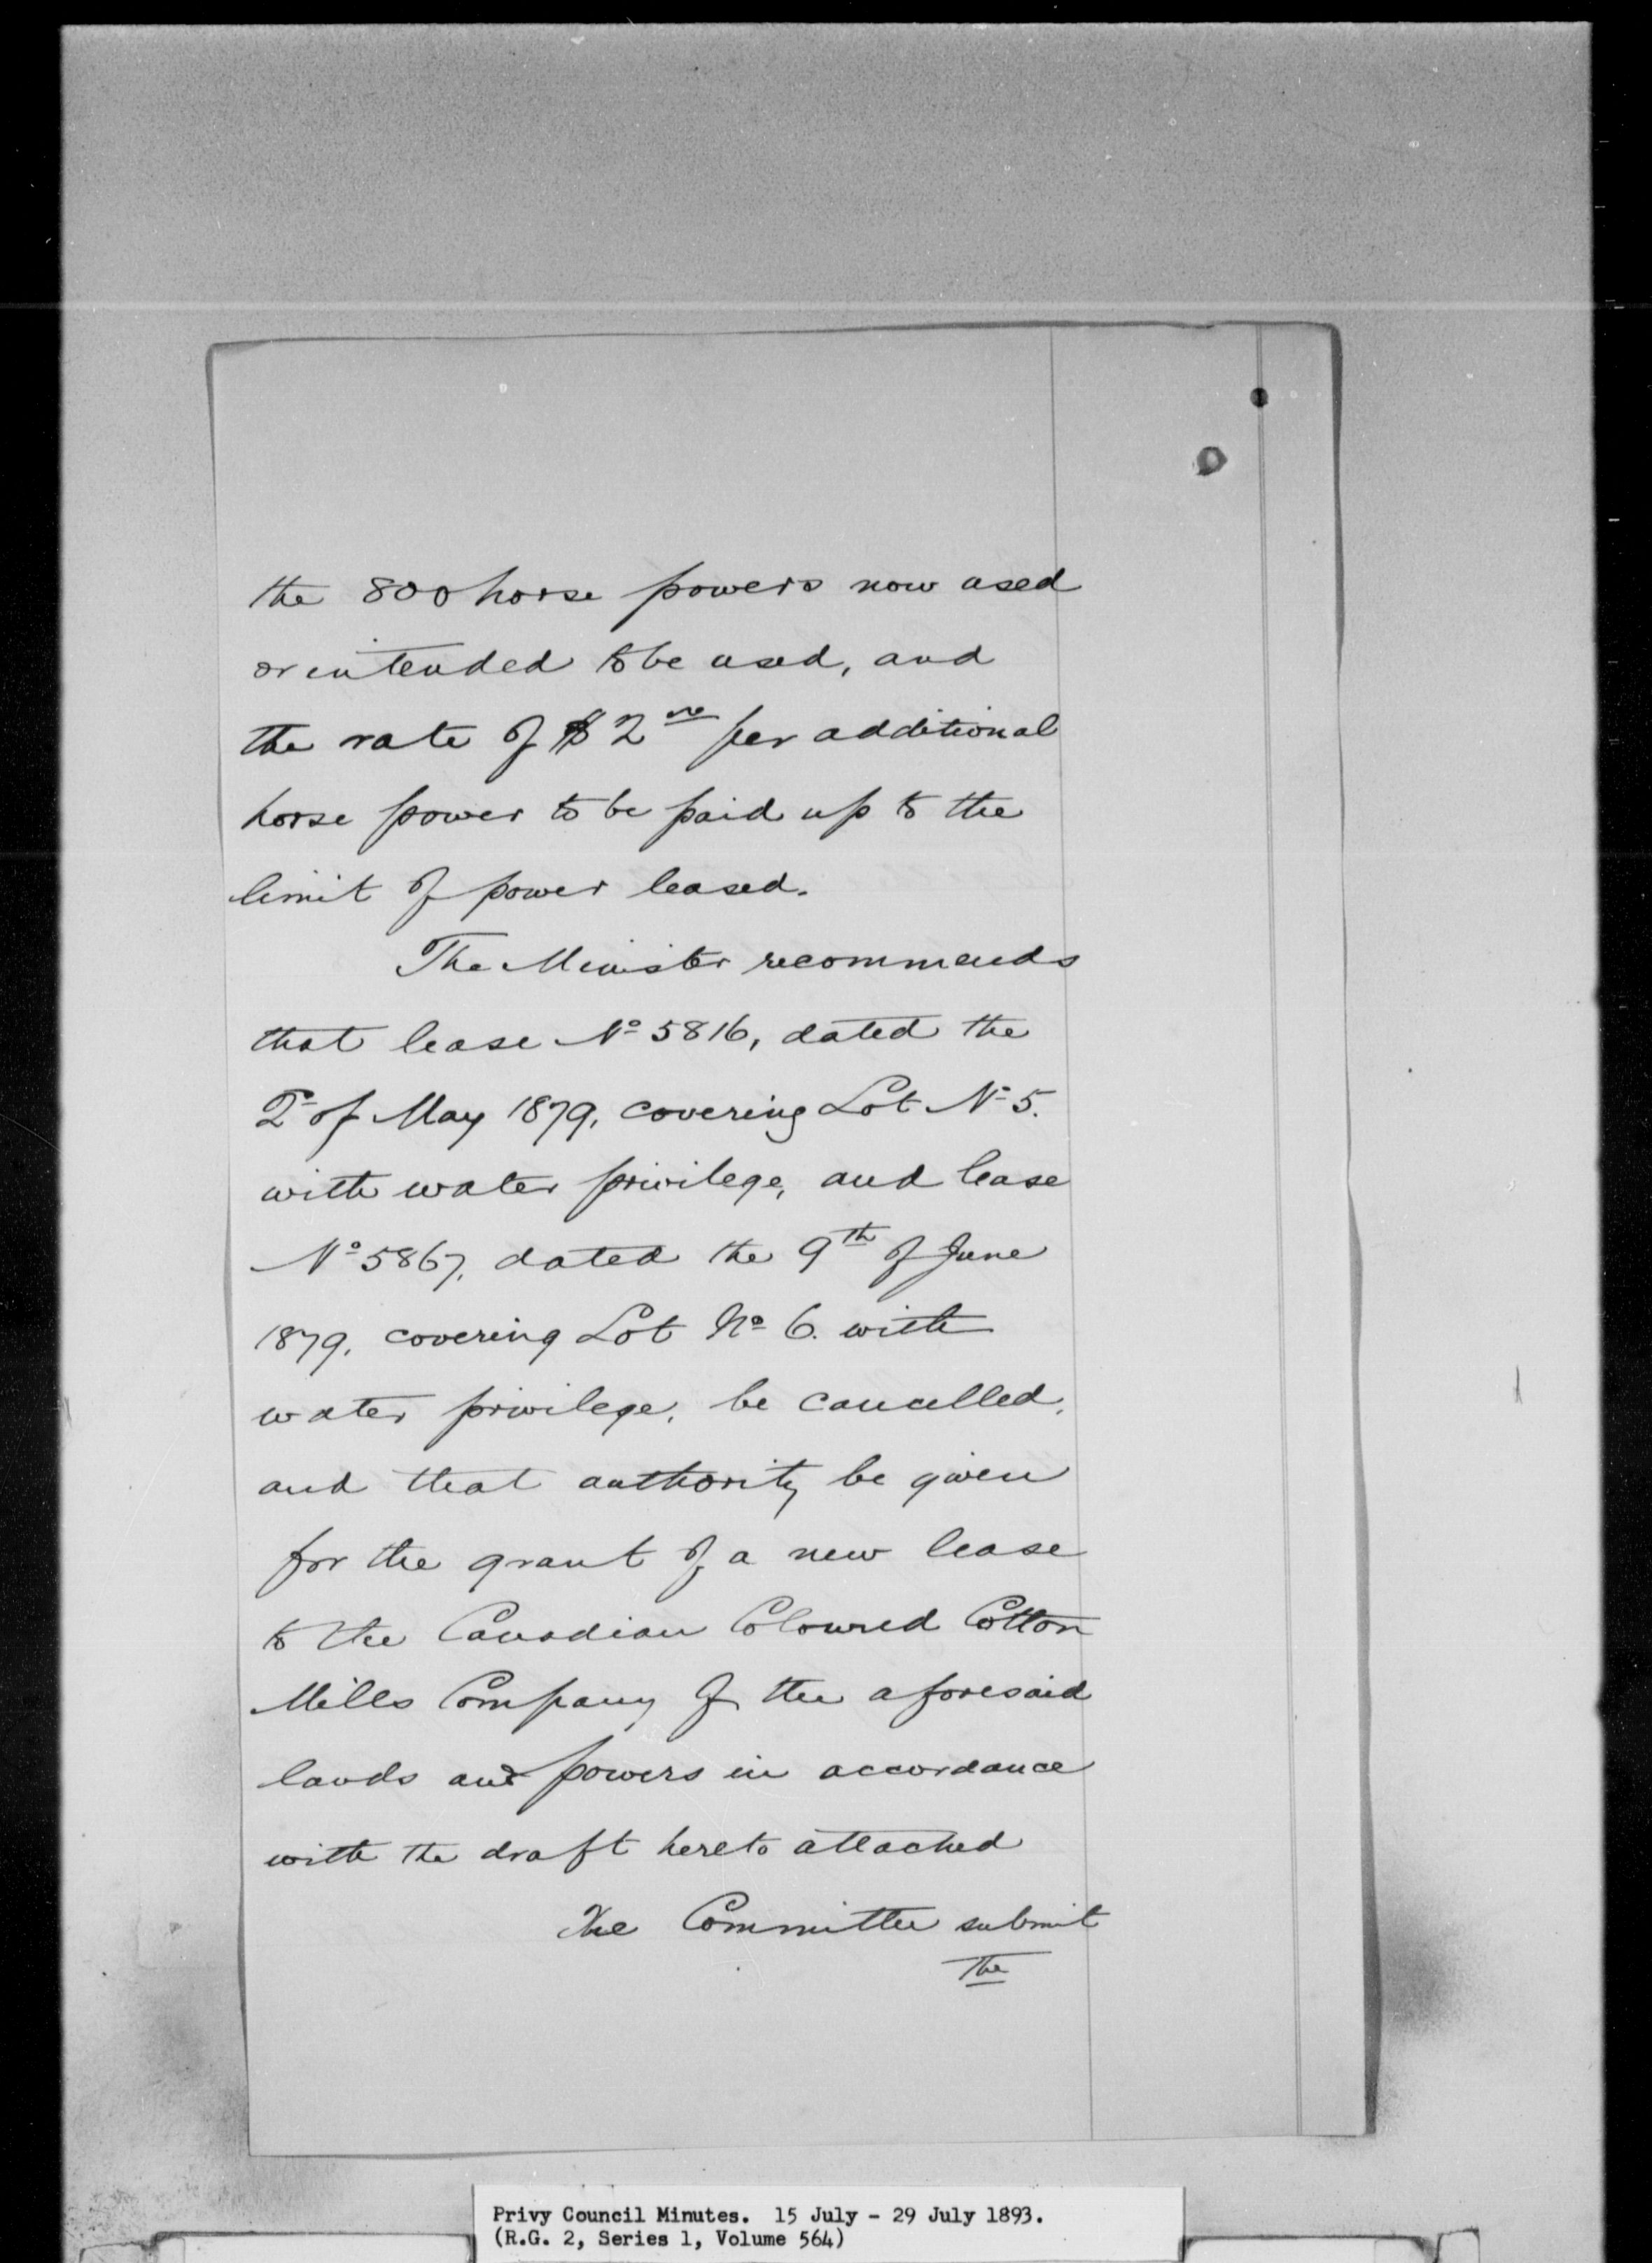 the 800 horse powers now used
or intended to be used, and
the rate of $2 00 per additional
horse power to be paid up to the
limit of power leased.
The Minister recommends
that lease No 5816, dated the
2d of May 1879, covering Lot No 5.
with water privilege, and lease
No 5867, dated the 9th of June
1879, covering Lot No 6. with
water privilege, be cancelled,
and that authority be given
for the grant of a new lease
to the Canadian Coloured Cotton
Mills Company of the aforesaid
lands and powers in accordance
with the draft hereto attached
The Committee submit
the
Privy Council Minutes. 15 July - 29 July 1893.
(R.G. 2, Series 1, Volume 564)